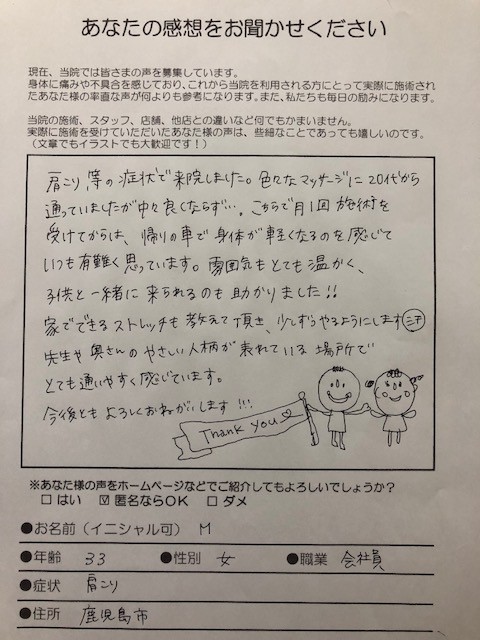 あなたの感想をお聞かせください
現在、当院では皆さまの声を募集しています。
身体に痛みや不具合を感じており、これから当院を利用される方にとって実際に施術され
たあなた様の率直な声が何よりも参考になります。また、私たちも毎日の励みになります。
当院の施術、スタッフ、店舗、他店との違いなど何でもかまいません。
実際に施術を受けていただいたあなた様の声は、些細なことであっても嬉しいのです。
（文章でもイラストでも大歓迎です！）
肩こり等の症状で来院しました。色々なマッサージに20代から
通っていましたが中々良くならずい、こちらで月1回施術を
受けてからは、帰りの車で身体が軽くなるのを感じて
いつも有難く思っています。雰囲気もとても温かく、
子供と一緒に来られるのも助かりました!!
家でできるストレッチも教えて頂き、少しずつやるようにします㊂
先生や奥さんのやさしい人柄が表れている場所で
とても通いやすく感じています。
今後ともよろしくおねがいします!!!
Thank you♡
※あなた様の声をホームページなどでご紹介してもよろしいでしょうか？
□ はい ☑ 匿名ならOK □ ダメ
●お名前（イニシャル可） M
●年齢 33 ●性別 女 ●職業 会社員
●症状 肩こり
●住所 鹿児島市